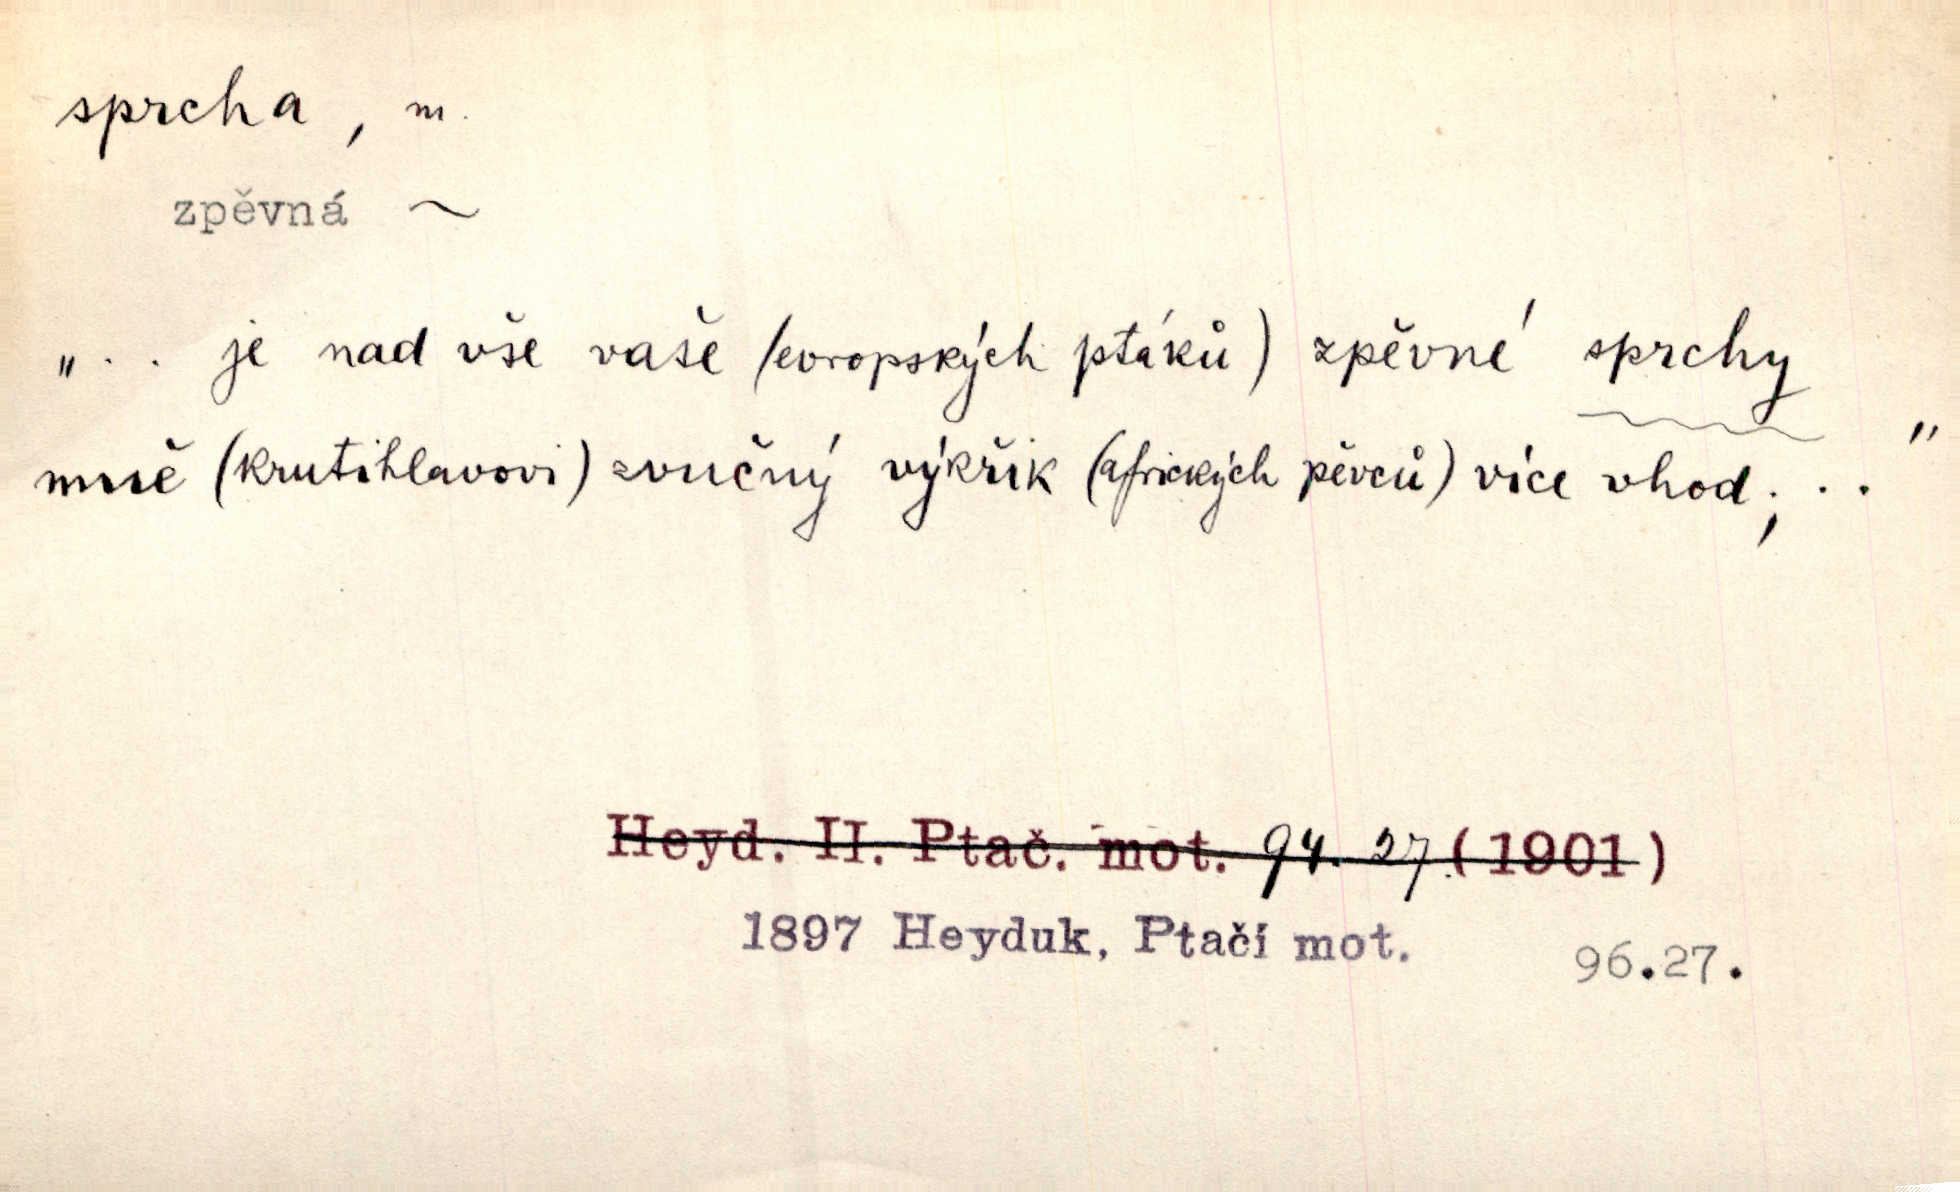 sprcha, m.
zpěvná ~
„.. je nad vše vaše (evropských ptáků) zpěvné sprchy
mně (krutihlavovi) zvučný výkřik (afrických pěvců) více vhod; .. "
Heyd. II. Ptač. mot. 94. 27. (1901)
1897 Heyduk, Ptačí mot. 96.27.